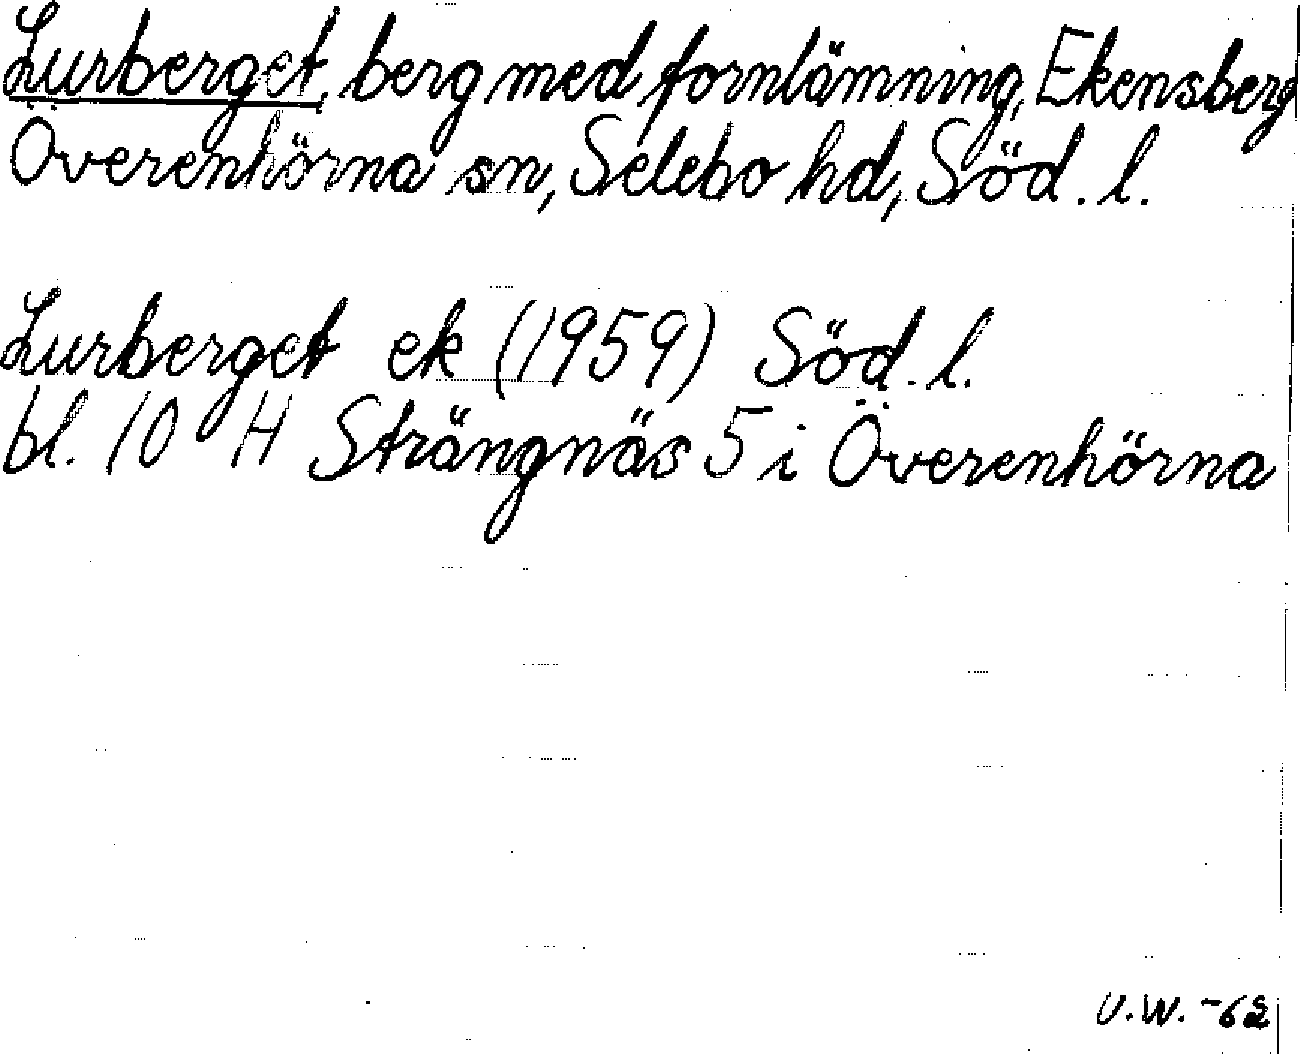 Lurberget, berg med fornlämning, Ekensberg
Överenhörna sn, Selebo hd, Söd. l.
Lurberget ek (1959) Söd. l.
bl. 10 H Strängnäs 5 i Överenhörna
U.W. -62